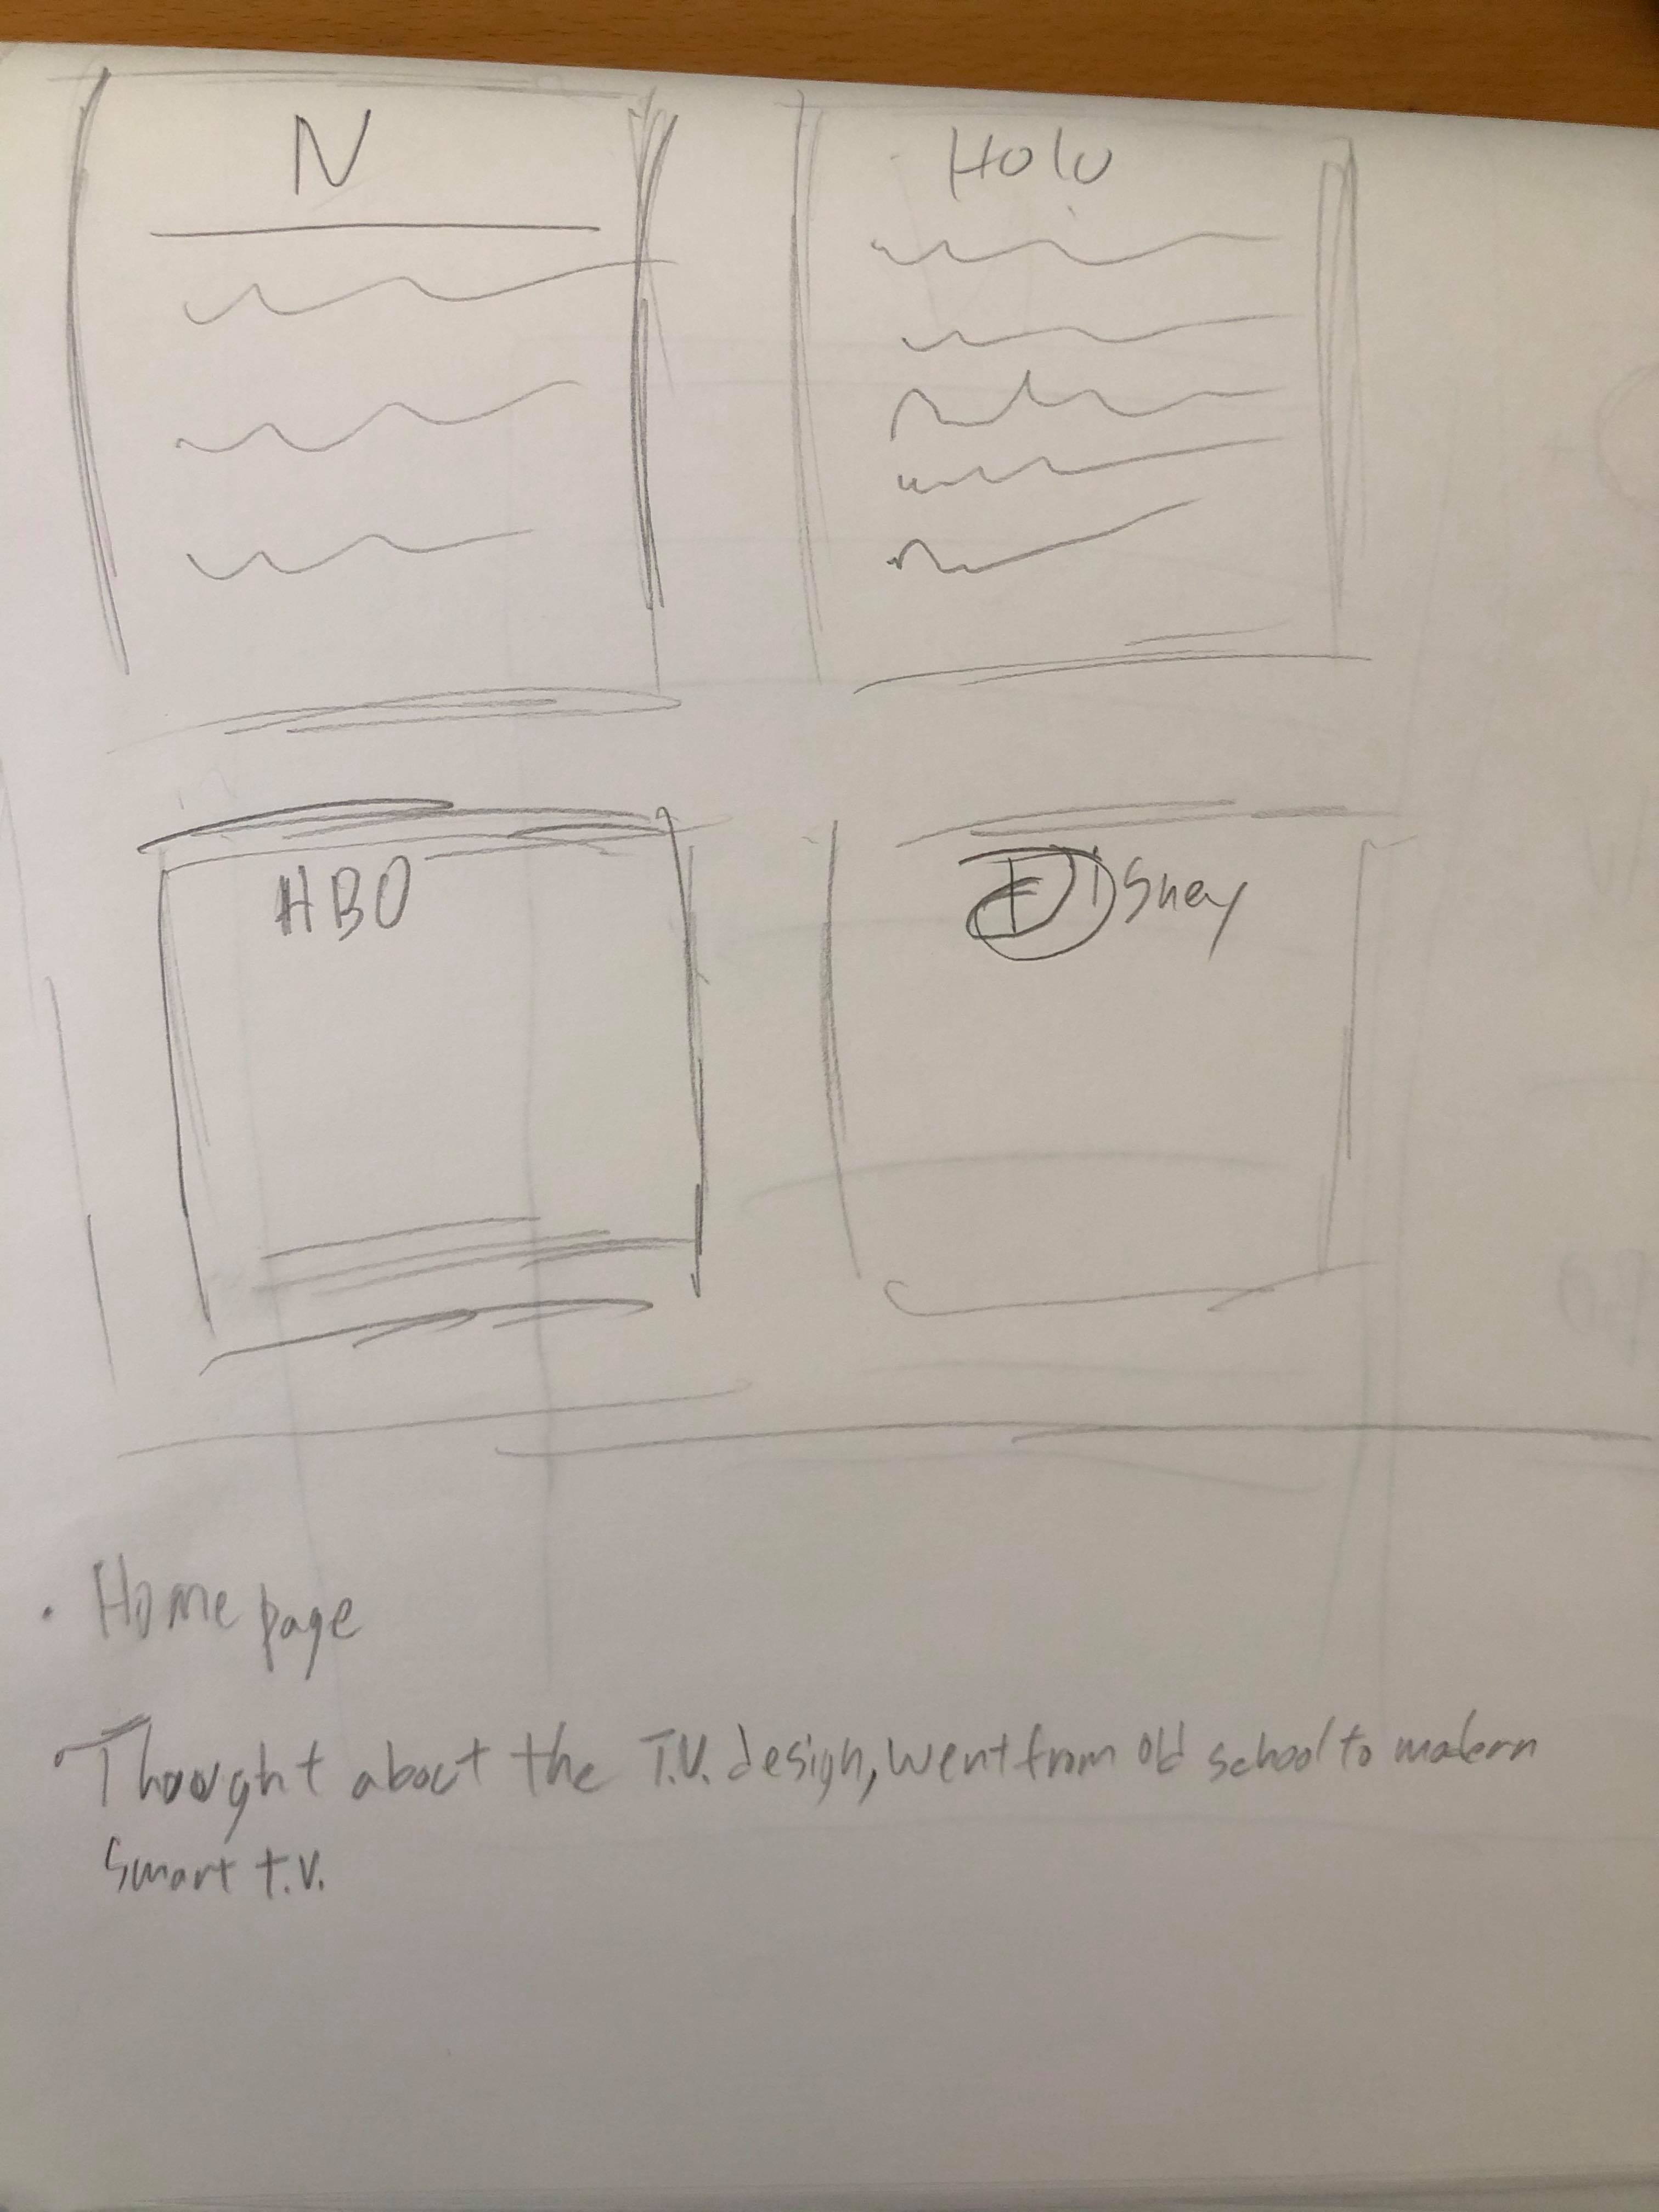 N
Holu
HBO
Disney
• Home page
• Thought about the T.V. design, went from old school to modern
Smart t.v.